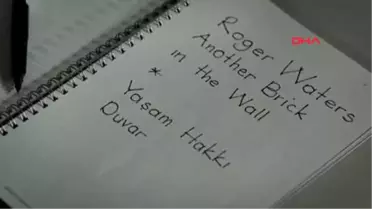 DHA
Roger Waters
Another Brick
in the Wall
*
Yaşam Hakkı
Duvar